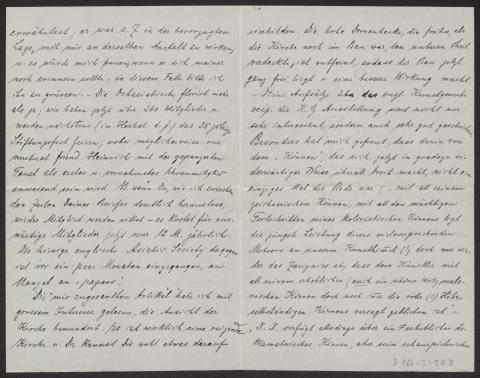 erwähntest; er war s. Z. in der bevorzugten
Lage, mit mir an derselben Anstalt zu wirken,
u. es würde mich freuen wenn er sich meiner
noch erinnern sollte; in diesem Falle bitte ich
ihn zu grüssen. – Die Ostasiatische floriert mehr
als je; wir haben jetzt über 260 Mitglieder u.
werden nächstens (im Herbst d. J.) das 25 jährige
Stiftungsfest feiern, wobei möglicherweise our
mutual friend Heinrich mit der gepanzerten
Faust als erstes u. vornehmstes Ehrenmitglied
anwesend sein wird. Wenn Du, wie ich zwischen
den Zeilen Deines Briefes deutlich herauslese,
wieder Mitglied werden willst – es kostet für aus-
wärtige Mitglieder jetzt nur 12 M. jährlich.
Die hiesige englische Asiatic Society dagegen
ist vor ein paar Monaten eingegangen, aus
Mangel an „papers“.
Die mir zugesandten Artikel habe ich mit
grossem Interesse gelesen, die Ansicht der
Kirche bewundert. Es ist wirklich eine reizende
Kirche u. Du kannst Dir wohl etwas darauf
einbilden. Die hohe Dornenhecke, die früher, als
die Kirche noch im Bau war, den unteren Theil
verdeckte, ist entfernt, sodass der Bau jetzt
ganz frei liegt u. eine bessere Wirkung macht.
– Deine Aufsätze über das engl. Kunstgewerbe
resp. die K. G. Ausstellung sind nicht nur
sehr interessant, sondern auch sehr gut geschrieben.
Besonders hat mich gefreut, dass darin von
dem „Können“, das sich jetzt in geradezu wi-
derwärtiger Weise überall breit macht, nicht ein
einziges Mal die Rede war („mit all seinem
zeichnerischen Können, mit all den mächtigen
Fortschritten seines koloristischen Könnens legt
die jüngste Leistung dieses vielversprechenden
Meteors an unserem Kunsthimmel (!) doch nur wie-
der das Zeugniss ab, dass dem Künstler mit
all seinem erheblichen (auch ein schönes Wort) male-
rischen Können doch noch die volle (!) Höhe
selbständigen Könnens versagt geblieben ist“ –
„X. X. verfügt allerdings über ein
Können, aber sein schauspielerisches
D 182-